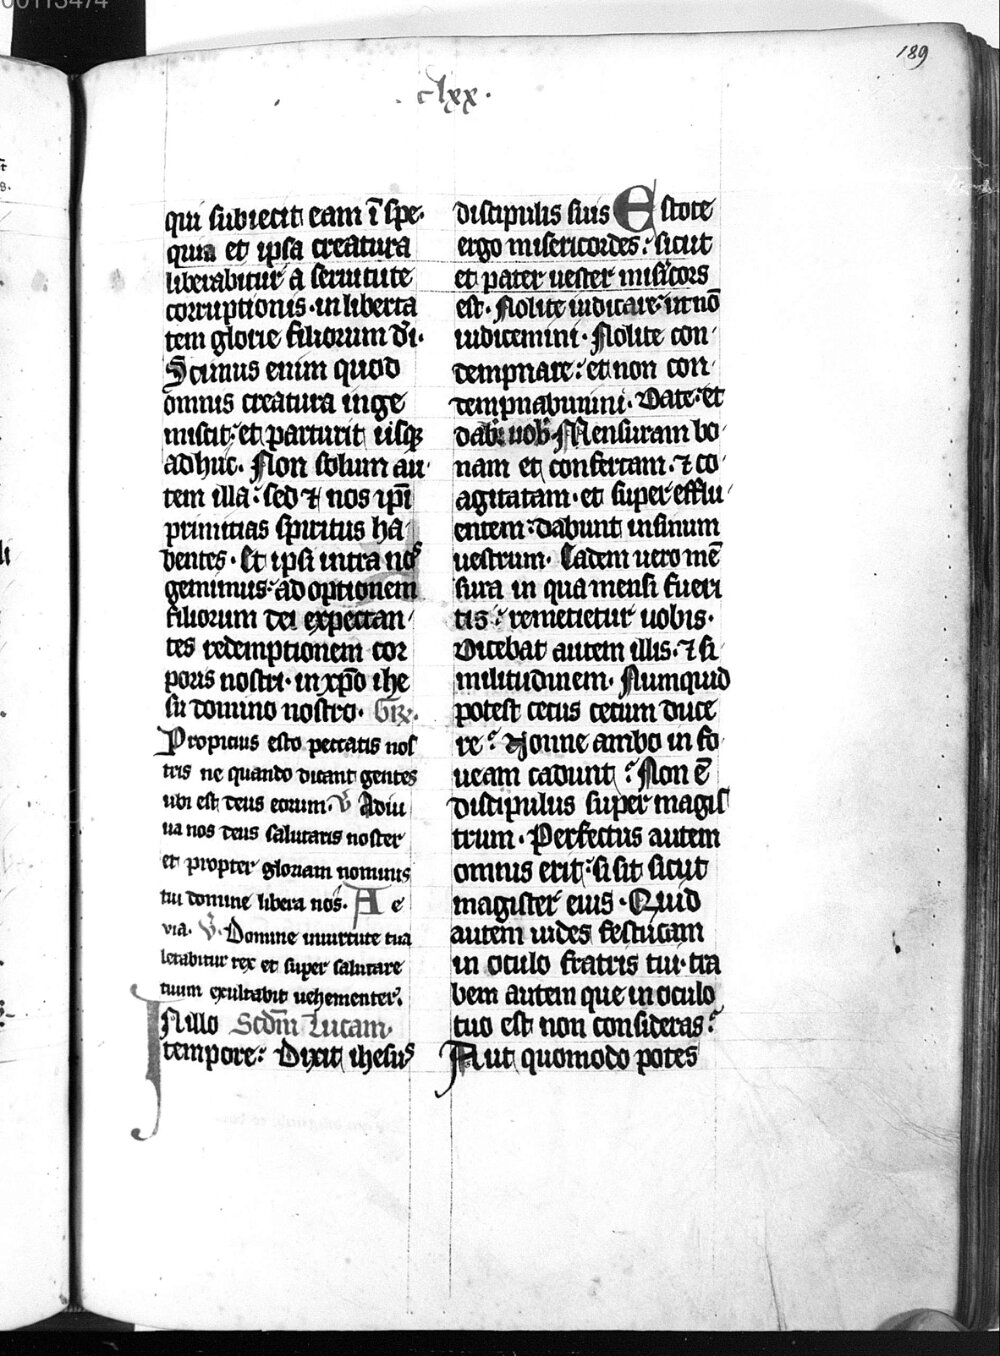 00113474
189
. clxx .
qui subiecit eam ī spe·
quia et ipsa creatura
liberabitur a seruitute
corruptionis · in liberta
tem glorie filiorum dī·
Scimus enim quod
omnis creatura inge
miscit : et parturit usq;
adhuc · Non solum au
tem illa : sed ⁊ nos ip̄i
primitias spiritus ha
bentes · Et ipsi intra nos
gemimus : adoptionem
filiorum dei expectan
tes redemptionem cor
poris nostri · in xp̄o ihe
su domino nostro · Gr̄.
Propicius esto peccatis nos
tris ne quando dicant gentes
ubi est deus eorum · V̄ Adiu
ua nos deus salutaris noster
et propter gloriam nominis
tui domine libera nos · A e
via · V̄ · Domine in uirtute tua
letabitur rex et super salutare
tuum exultabit uehementer :
INillo Scdm̄ Lucam ·
tempore : Dixit ihesus
discipulis suis Estote
ergo misericordes : sicut
et pater uester misĩcors
est · Nolite iudicare : ut nō
iudicemini · Nolite con
dempnare : et non con
dempnabimini · Date : et
dabit̃ uob̃ · Mensuram bo
nam et confertam · ⁊ co
agitatam · et super efflu
entem : dabunt in sinum
uestrum · Eadem uero mē
sura in qua mensi fueri
tis : remetietur uobis ·
Dicebat autem illis · ⁊ si
militudinem · Numquid
potest cecus cecum duce
re ? Nonne ambo in fo
ueam cadunt ? Non ē
discipulus super magis
trum · Perfectus autem
omnis erit : si sit sicut
magister eius · Quid
autem uides festucam
in oculo fratris tui · tra
bem autem que in oculo
tuo est non consideras ?
Aut quomodo potes